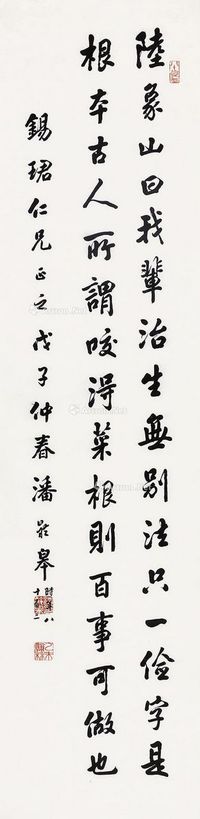 陸象山曰我輩治生無別法只一儉字是
根本古人所謂咬得菜根則百事可做也
錫珺仁兄正之戊子仲春潘齡皋
時年八
十有二